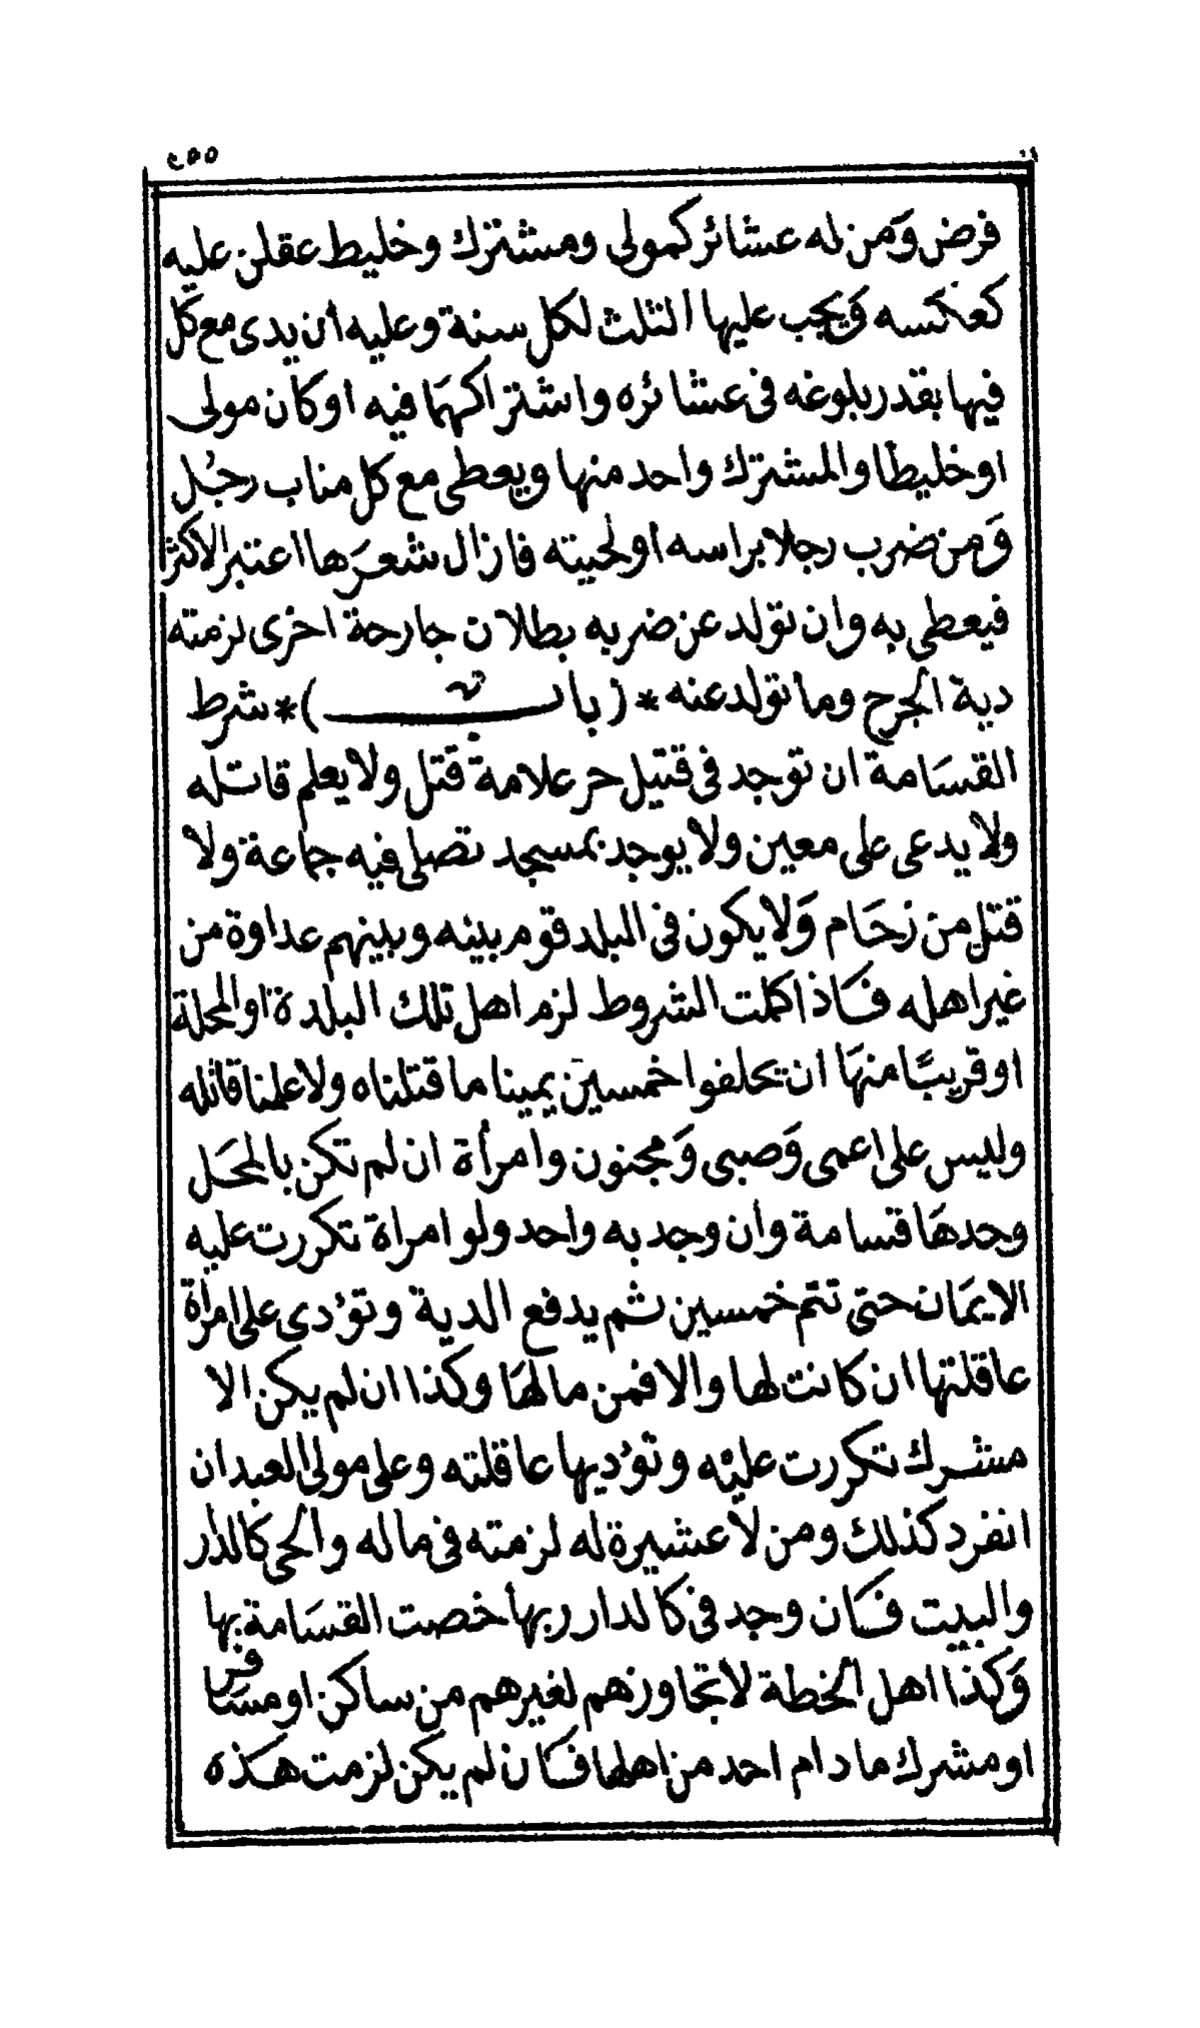 ٢٥٥
فرض ومن له عشائر كمولى ومشترك وخليط عقلن عليه
كعكسه ويجب عليها الثلث لكل سنة وعليه أن يدى مع كل
فيها بقدر بلوغه فى عشائره واشتراكهما فيه اوكان مولى
اوخليطا والمشترك واحد منها ويعطى مع كل مناب رجُل
وَمن ضرب رجلا براسه أولحيته فازال شعرَها اعتبر الاكثر
فيعطى به وان تولد عن ضربه بطلان جارحة اخرى لزمته
دية الجرح وما تولد عنه * ( باب ) * شرط
القسَامة ان توجد فى قتيل حر علامة قتل ولا يعلم قاتله
ولا يدعى على معين ولا يوجد بمسجد تصلى فيه جماعة ولا
قتل من زحَام وَلا يكون فى البلد قوم بينه وبينهم عداوة من
غير اهله فَاذا كملت الشروط لزم اهل تلك البلدة اوالمحلة
اوقريبًا منهَا ان يحلفوا خمسين يمينا ما قتلناه ولا علمنا قاتله
وليس على اعمى وَصبى وَمجنون وامرأة ان لم تكن بالمحَل
وحدهَا قسامة وان وجد به واحد ولو امراة تكررت عليه
الايمَان حتى تتم خمسين ثم يدفع الدية وتؤدى على امراة
عاقلتها ان كانت لها والا فمن مالهَا وكذا ان لم يكن الا
مشرك تكررت عليه وتؤديها عاقلته وعلى مولى العبد ان
انفرد كذلك ومن لا عشيرة له لزمته فى ماله والحى كالدار
والبيت فَان وجد فى كالدار ربها خصت القسَامة بها
وَكذا اهل الخطة لا تجاوزهم لغيرهم من ساكن اومسَافر
اومشرك ما دام احد من اهلها فَان لم يكن لزمت هكذه